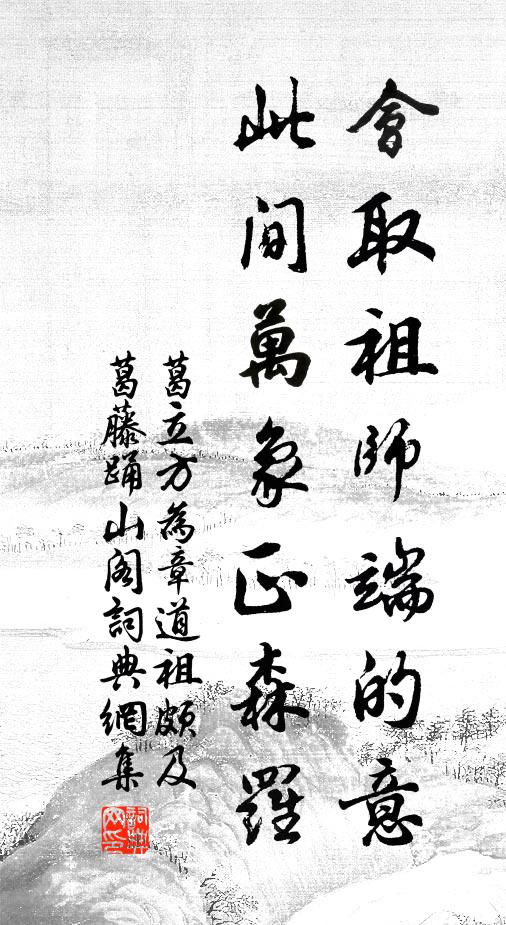 會取祖師端的意
此間萬象正森羅
葛立方為章道祖頗及
葛藤踊山閣詞典網集
詞典網印